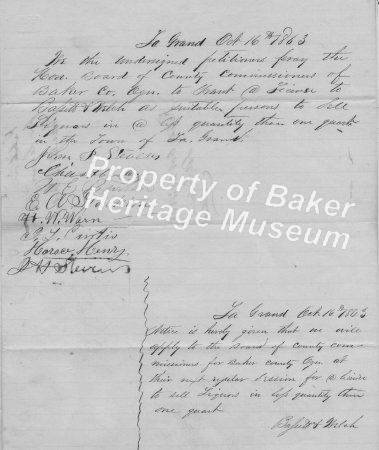 La Grand Oct 16th 1863
We the undersigned petitioners pray the
Hon. Board of County Commissioners of
Baker Co. Ogn. to Grant @ License to
Bassitt & Welch as suitable persons to Sell
Liquors in @ less quantity then one quart
in the Town of La Grand.
John F Stevens
E. A.
H. W. Warn
Curtis
Horace Henry
Stevens
Property of Baker
Heritage Museum
La Grand Oct 16th 1863
Notice is hereby given that we will
apply to the Board of County com-
missioners for Baker county Ogn at
their next regular Session for @ licince
to sell Liquors in less quantity then
one quart
Bassitt & Welch